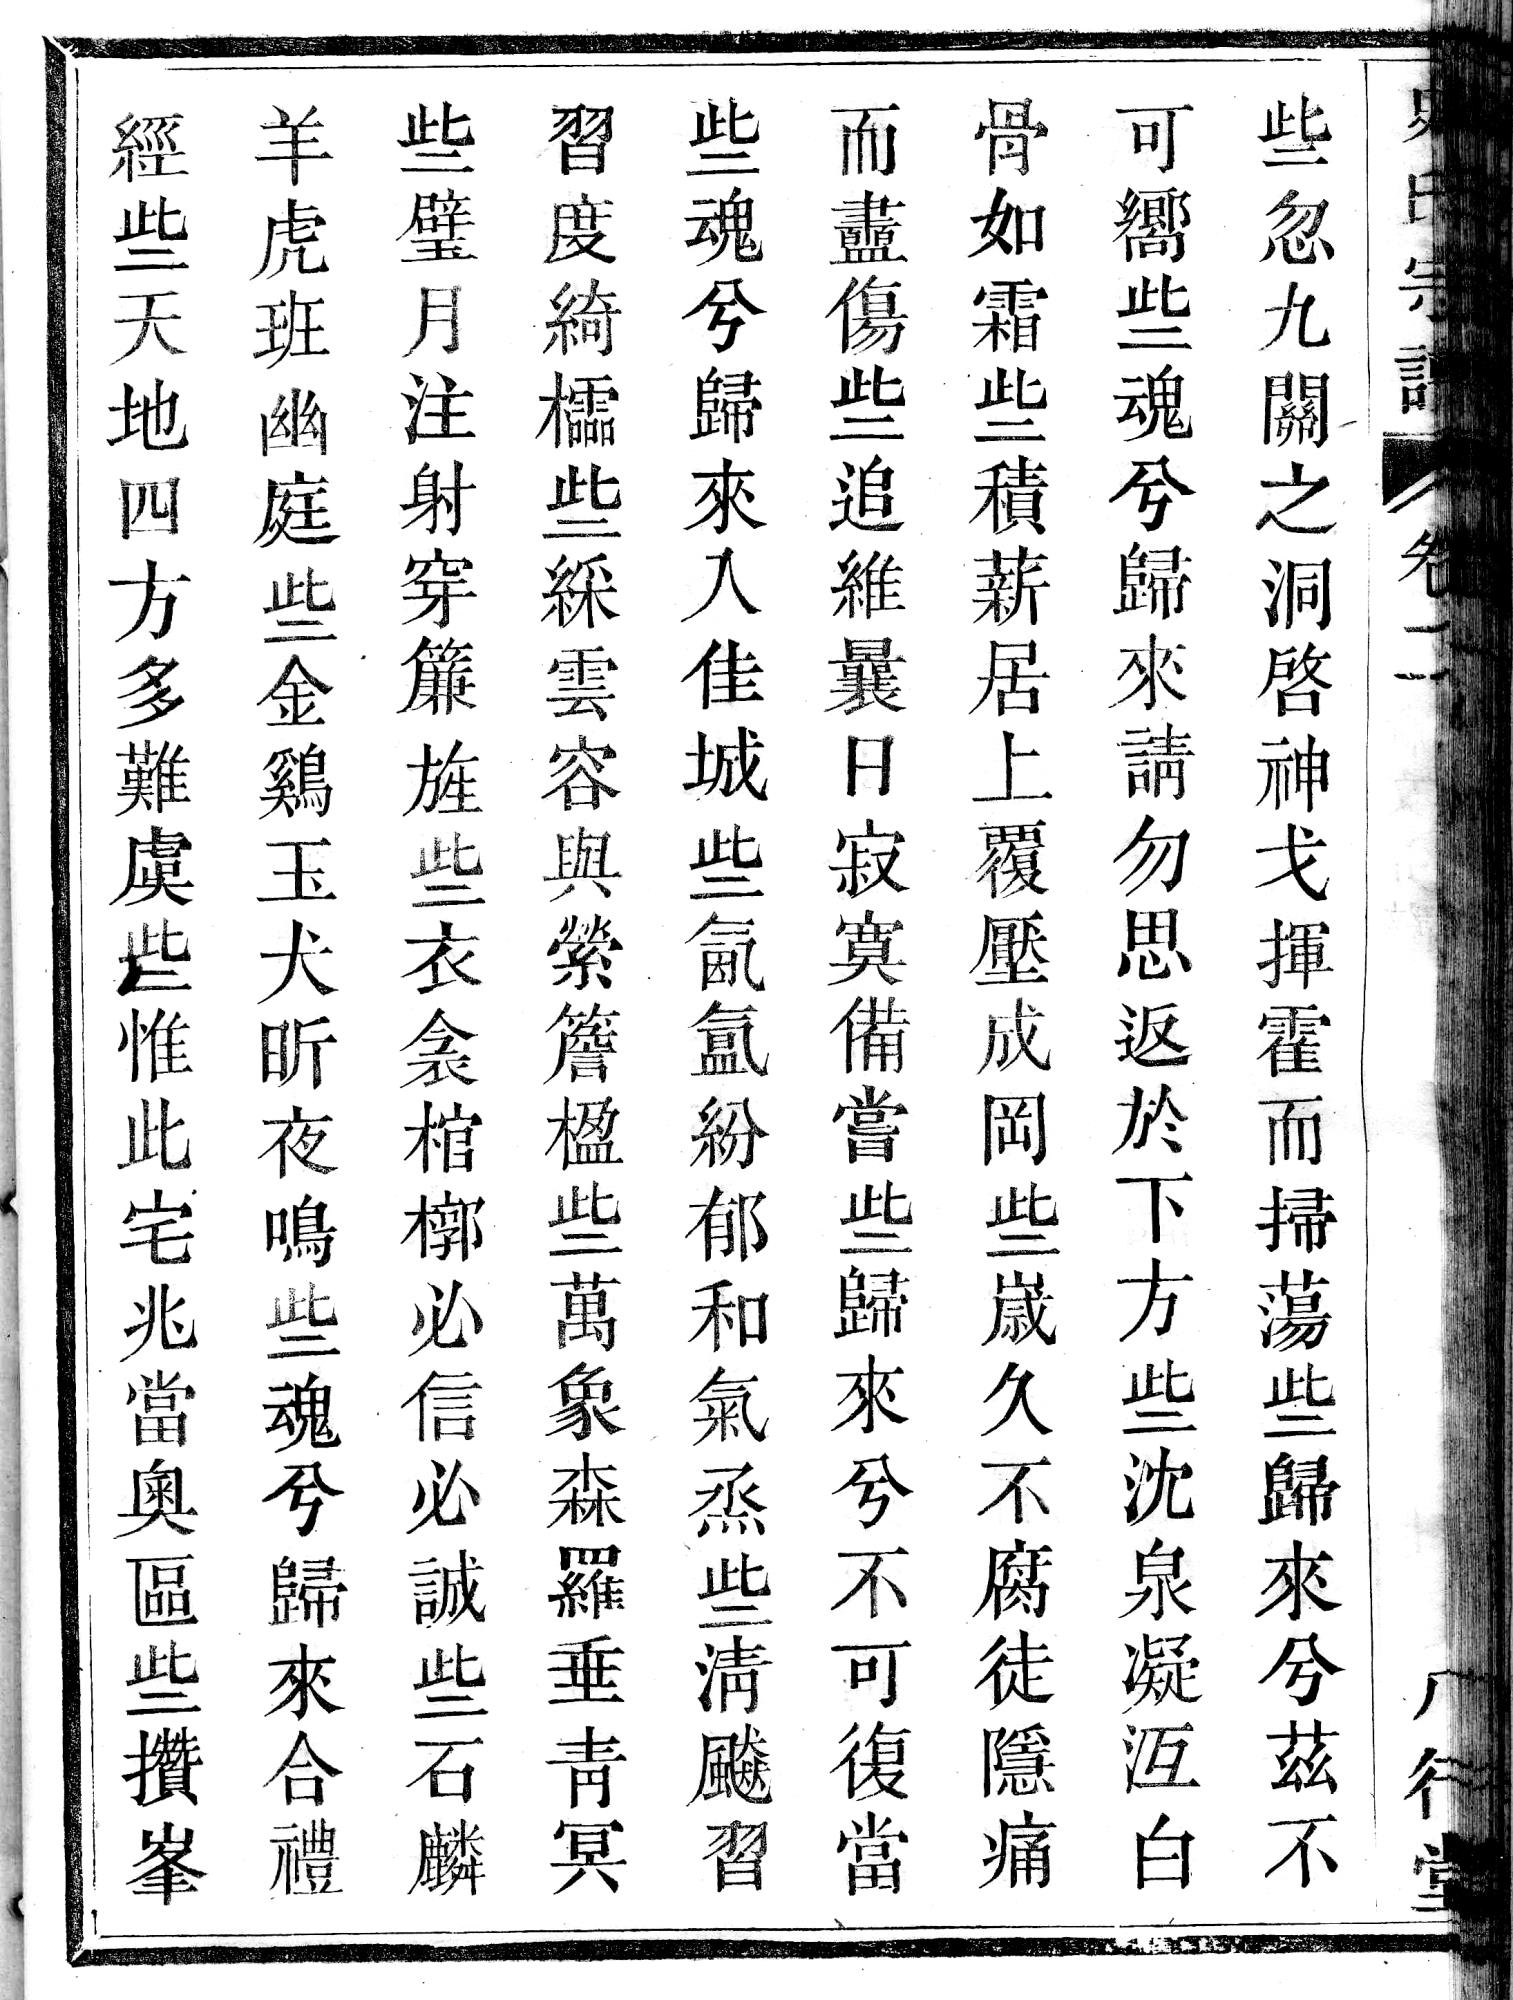 史氏宗譜 卷二 八行堂
些忽九關之洞啓神戈揮霍而掃蕩些歸來兮茲不
可嚮些魂兮歸來請勿思返於下方些沈泉凝沍白
骨如霜些積薪居上覆壓成岡些歲久不腐徒隱痛
而盡傷些追維曩日寂寞備嘗些歸來兮不可復當
些魂兮歸來入佳城些氤氲紛郁和氣烝些淸飈習
習度綺櫺些綵雲容與縈簷楹些萬象森羅垂靑冥
些璧月注射穿簾旌些衣衾棺槨必信必誠些石麟
羊虎班幽庭些金鷄玉犬昕夜鳴些魂兮歸來合禮
經些天地四方多難虞些惟此宅兆當奧區些攢峯